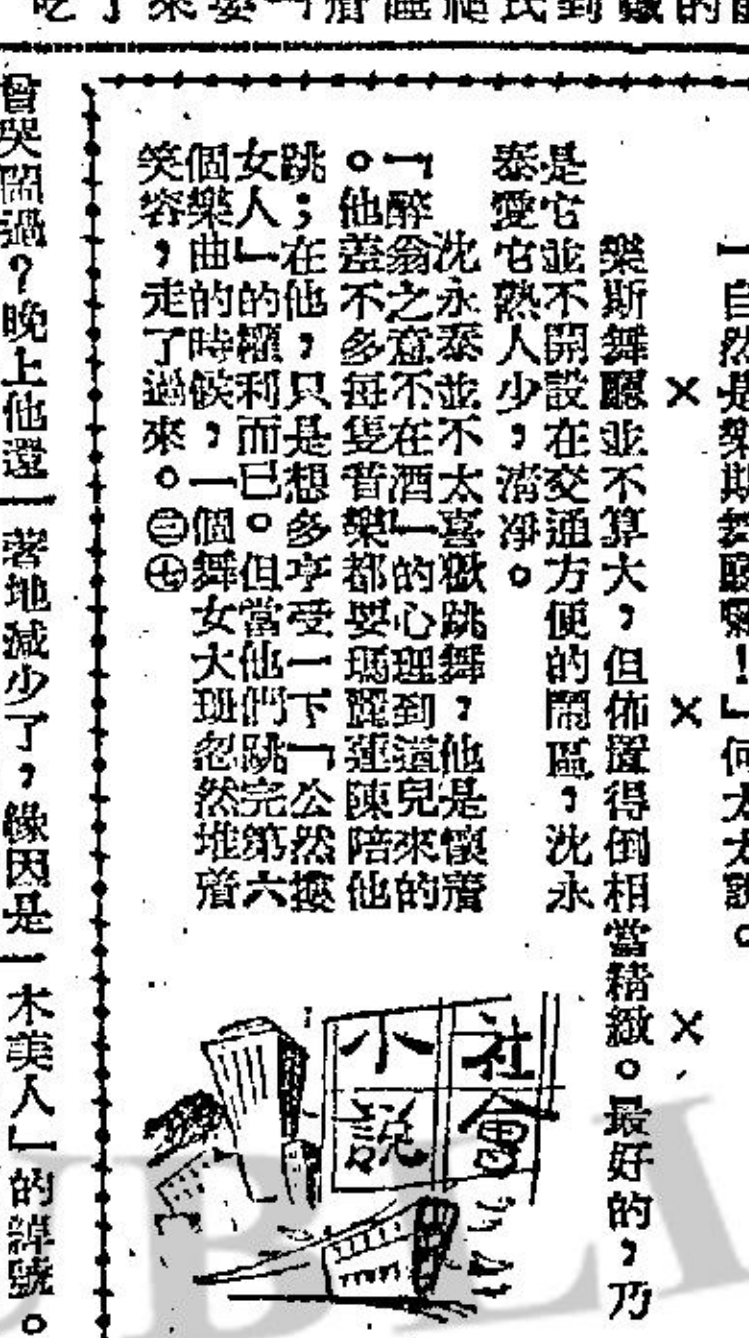 「自然是樂斯舞廳囉！」何太太說。
× × ×
樂斯舞廳並不算大，但佈置得倒相當精緻。最好的，乃
是它並不開設在交通方便的鬧區，沈永
泰愛它熟人少，清净。
沈永泰並不太喜歡跳舞，他是懷着
「醉翁之意不在酒」的心理到這兒來的
。他差不多每隻音樂都要瑪麗蓮陳陪他
跳；在他，只是想多享受一下「公然摟
女人」的權利而已。但當他們跳完第六
個樂曲的時候，一個舞女大班忽然堆着
笑容，走了過來。㊂㊆
社會
小說
曾哭鬧過？晚上他還一
著地減少了，緣因是「木美人」的綽號。